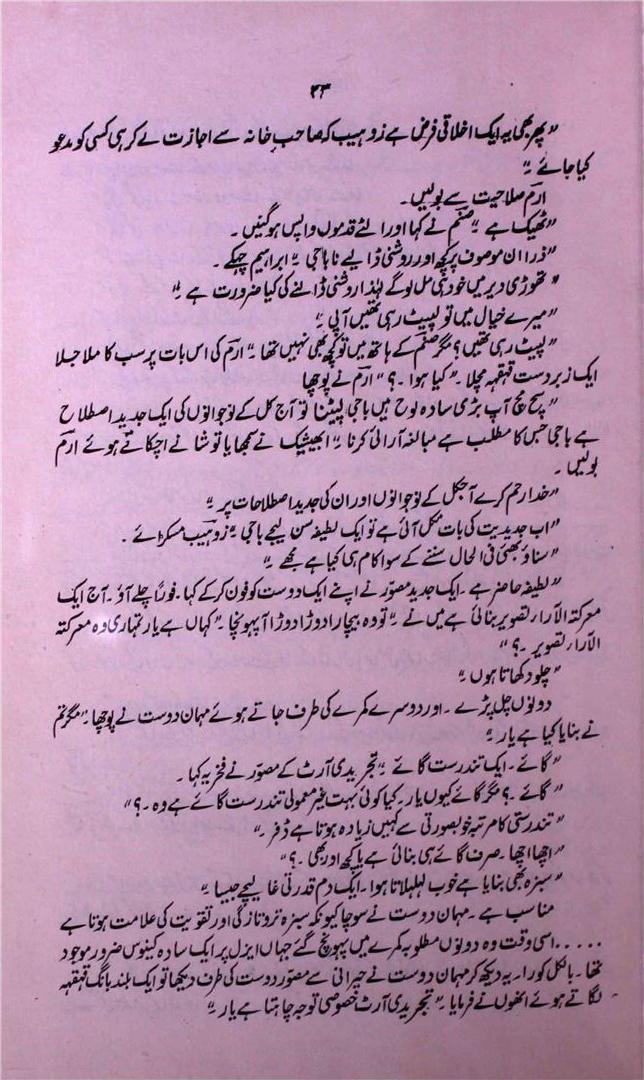 ۲۳
”پھر بھی یہ ایک اخلاقی فرض ہے زوہیب کہ صاحبِ خانہ سے اجازت لے کر ہی کسی کو مدعو
کیا جائے۔“
ارم صلاحیت سے بولیں۔
”ٹھیک ہے۔“ صنم نے کہا اور الٹے قدموں واپس ہو گئیں۔
”ذرا ان موصوف پر کچھ اور روشنی ڈالیے نا باجی۔“ ابراہیم چہکے۔
”تھوڑی دیر میں خود ہی مل لو گے لہٰذا روشنی ڈالنے کی کیا ضرورت ہے۔“
”میرے خیال میں تو لپیٹ رہی تھیں آپی۔“
”لپیٹ رہی تھیں؟ مگر صنم کے ہاتھ میں تو کچھ بھی نہیں تھا۔“ ارم کی اس بات پر سب کا ملا جلا
ایک زبردست قہقہہ مچلا۔ ”کیا ہوا۔؟“ ارم نے پوچھا
”سچ مچ آپ بڑی سادہ لوح ہیں باجی لپیٹنا تو آج کل کے نوجوانوں کی ایک جدید اصطلاح
ہے باجی جس کا مطلب ہے مبالغہ آرائی کرنا۔“ ابھیشیک نے سمجھایا تو شانے اچکاتے ہوئے ارم
بولیں۔
”خدا رحم کرے آجکل کے نوجوانوں اور ان کی جدید اصطلاحات پر۔“
”اب جدیدیت کی بات نکل آئی ہے تو ایک لطیفہ سن لیجے باجی۔“ زوہیب مسکرائے۔
”سناؤ بھئی فی الحال سننے کے سوا کام ہی کیا ہے مجھے۔“
”لطیفہ حاضر ہے۔ ایک جدید مصوّر نے اپنے ایک دوست کو فون کر کے کہا۔ فوراً چلے آؤ۔ آج ایک
معرکتہ الآرا، تصویر بنائی ہے میں نے۔“ تو وہ بیچارا دوڑا دوڑا آ پہونچا۔ ”کہاں ہے یار تمہاری وہ معرکتہ
الآرا، تصویر۔؟“
”چلو دکھاتا ہوں۔“
دونوں چل پڑے۔ اور دوسرے کمرے کی طرف جاتے ہوئے مہمان دوست نے پوچھا۔ ”مگر تم
نے بنایا کیا ہے یار۔“
”گائے۔ ایک تندرست گائے۔“ تجریدی آرٹ کے مصوّر نے فخریہ کہا۔
”گائے۔؟ مگر گائے کیوں یار۔ کیا کوئی بہت غیر معمولی تندرست گائے ہے وہ۔؟“
”تندرستی کا مرتبہ خوبصورتی سے کہیں زیادہ ہوتا ہے ڈفر۔“
”اچھا اچھا۔ صرف گائے ہی بنائی ہے یا کچھ اور بھی۔؟“
”سبزہ بھی بنایا ہے خوب لہلہاتا ہوا۔ ایک دم قدرتی غالیچے جیسا۔“
مناسب ہے۔ مہمان دوست نے سوچا کیونکہ سبزہ تروتازگی اور تقویت کی علامت ہوتا ہے
..... اسی وقت وہ دونوں مطلوبہ کمرے میں پہونچ گئے جہاں ایزل پر ایک سادہ کینوس ضرور موجود
تھا۔ بالکل کورا۔ یہ دیکھ کر مہمان دوست نے حیرانی سے مصوّر دوست کی طرف دیکھا تو ایک بلند بانگ قہقہہ
لگاتے ہوئے انھوں نے فرمایا۔ ”تجریدی آرٹ خصوصی توجہ چاہتا ہے یار۔“